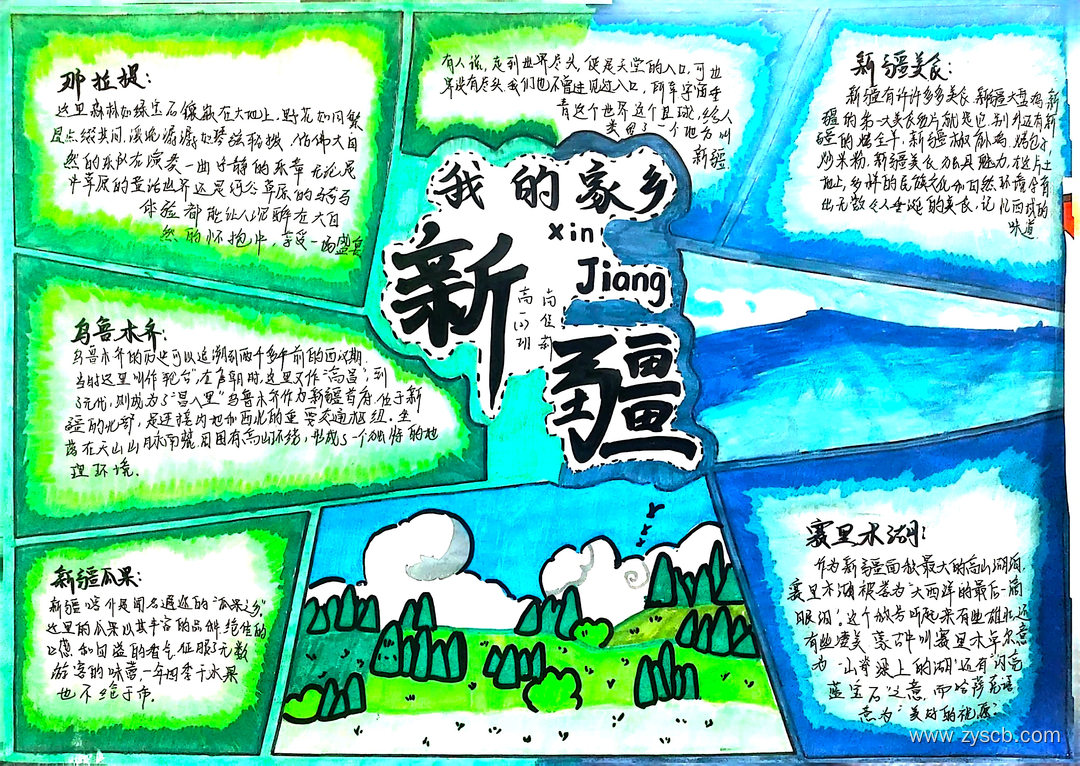 那拉提:
这里森林如绿宝石镶嵌在大地上,野花如同繁
星点缀其间,溪流潺潺如琴弦轻拨,仿佛大自
然的乐队在演奏一曲宁静的乐章,无论是
草原的童话世界还是河谷草原的骑马
体验都能让人沉醉在大自
然的怀抱中,享受一场盛宴
有人说,走到世界尽头,便是天堂的入口,可世
界没有尽头,我们也不曾进见过入口,所幸宇宙垂
青这个世界这个星球,给人
类留了一个地方叫
新疆
新疆美食:
新疆有许许多多美食,新疆大盘鸡,新
疆的第一大美食名片就是它,别外还有新
疆的烤全羊,新疆椒麻鸡,烤包子
炒米粉,新疆美食别具魅力,在这片土
地上,多样的民族文化和自然环境孕育
出无数令人垂涎的美食,记忆西域的
味道
我的家乡
xin
Jiang
新
疆
乌鲁木齐:
乌鲁木齐的历史可以追溯到两千多年前的西汉时期
当时这里叫作轮台",在唐朝时,这里又作"高昌",到
了元代,则成为了"昌八里"乌鲁木齐作为新疆首府,位于新
疆的北部,是连接内地和西北的重要交通枢纽.坐
落在天山山脉南麓,周围有高山环绕,形成了一个独特的地
理环境.
新疆瓜果:
新疆,堪个是闻名遐迩的"瓜果之乡".
这里的瓜果以其丰富的品种,绝佳的
口感和四溢的香气,征服了无数
游客的味蕾一年四季干水果
也不绝于市.
赛里木湖:
作为新疆面积最大的高山湖泊,
赛里木湖被誉为"大西洋的最后一滴
眼泪",这个故号听起来有些雄壮,还
有些凄美.蒙古叫赛里木卓尔意
为"山脊梁上的湖"还有"闪亮
蓝宝石"之意.而哈萨克语
意为"美好的祝愿"
www.zyscb.com